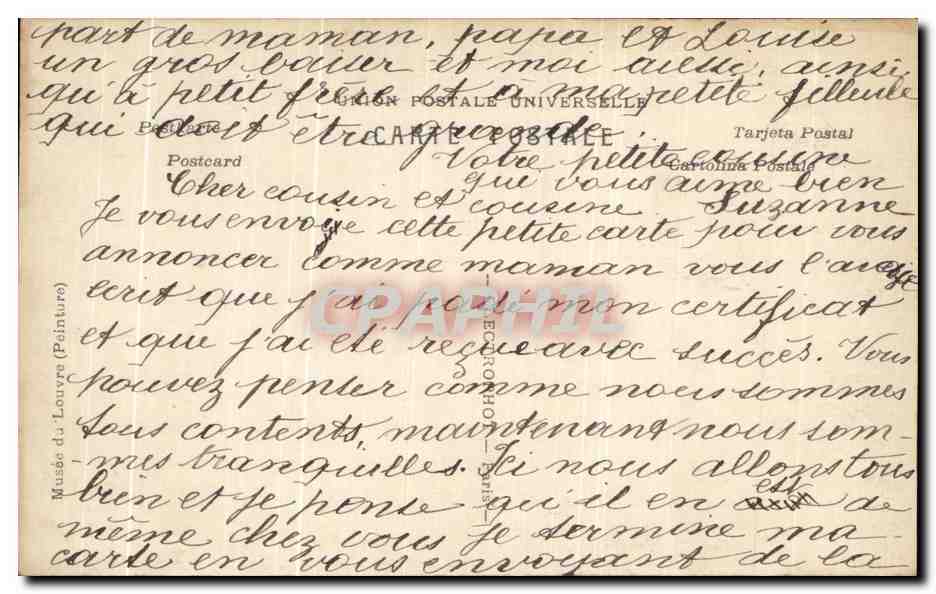 part de maman, papa et Louise
un gros baiser et moi aussi, ainsi
qu'à petit frère et à ma petite filleule
UNION POSTALE UNIVERSELLE
qui doit être grande.
Postkarte
CARTE POSTALE
Tarjeta Postal
Votre petite cousine
Postcard
Cartolina Postale
que vous aime bien
Suzanne
Cher cousin et cousine
Je vous envoie cette petite carte pour vous
annoncer comme maman vous l'avait
écrit que j'ai passé mon certificat
et que j'ai été reçue avec succès. Vous
pouvez penser comme nous sommes
tous contents, maintenant nous som-
-mes tranquilles. Ici nous allons tous
bien et je pense qu'il en est de
même chez vous Je termine ma
carte en vous envoyant de la
Musée du Louvre (Peinture)
NEURDEIN ELECTROPHOT — Paris
CPAPHIL